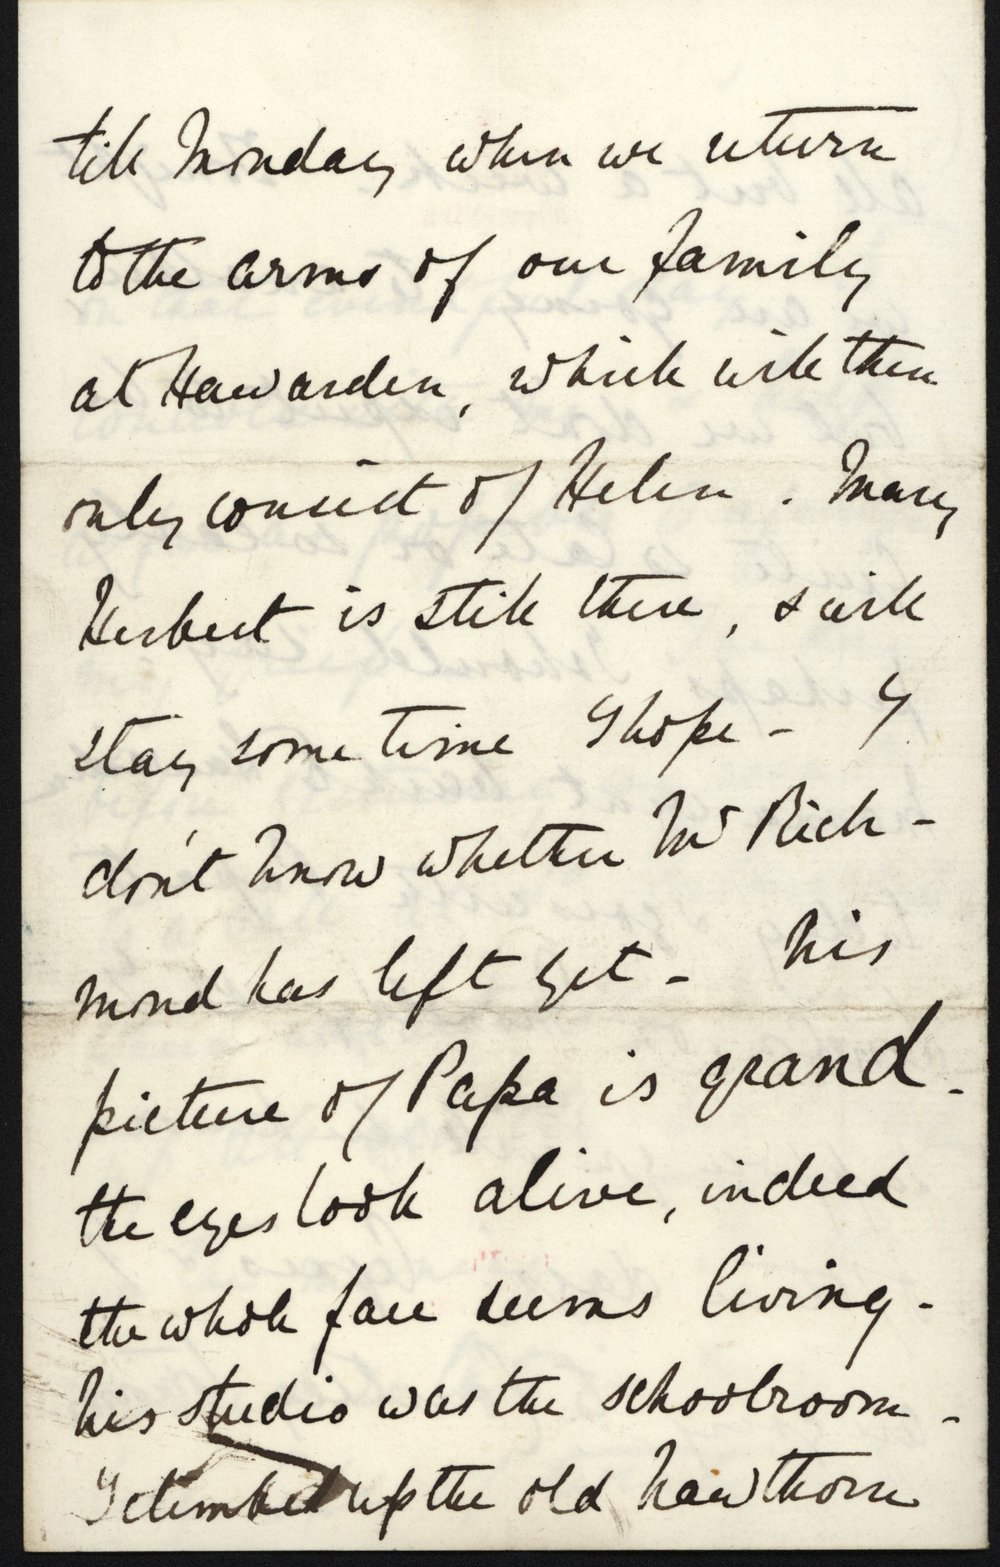 till Monday when we return
to the arms of our family
at Hawarden, which will then
only consist of Helen. Mary
Herbert is still there, & will
stay some time I hope - I
don't know whether Mr Rich-
mond has left yet - his
picture of Papa is grand.
the eyes look alive, indeed
the whole face seems living.
his studio was the schoolroom -
I climbed up the old hawthorn